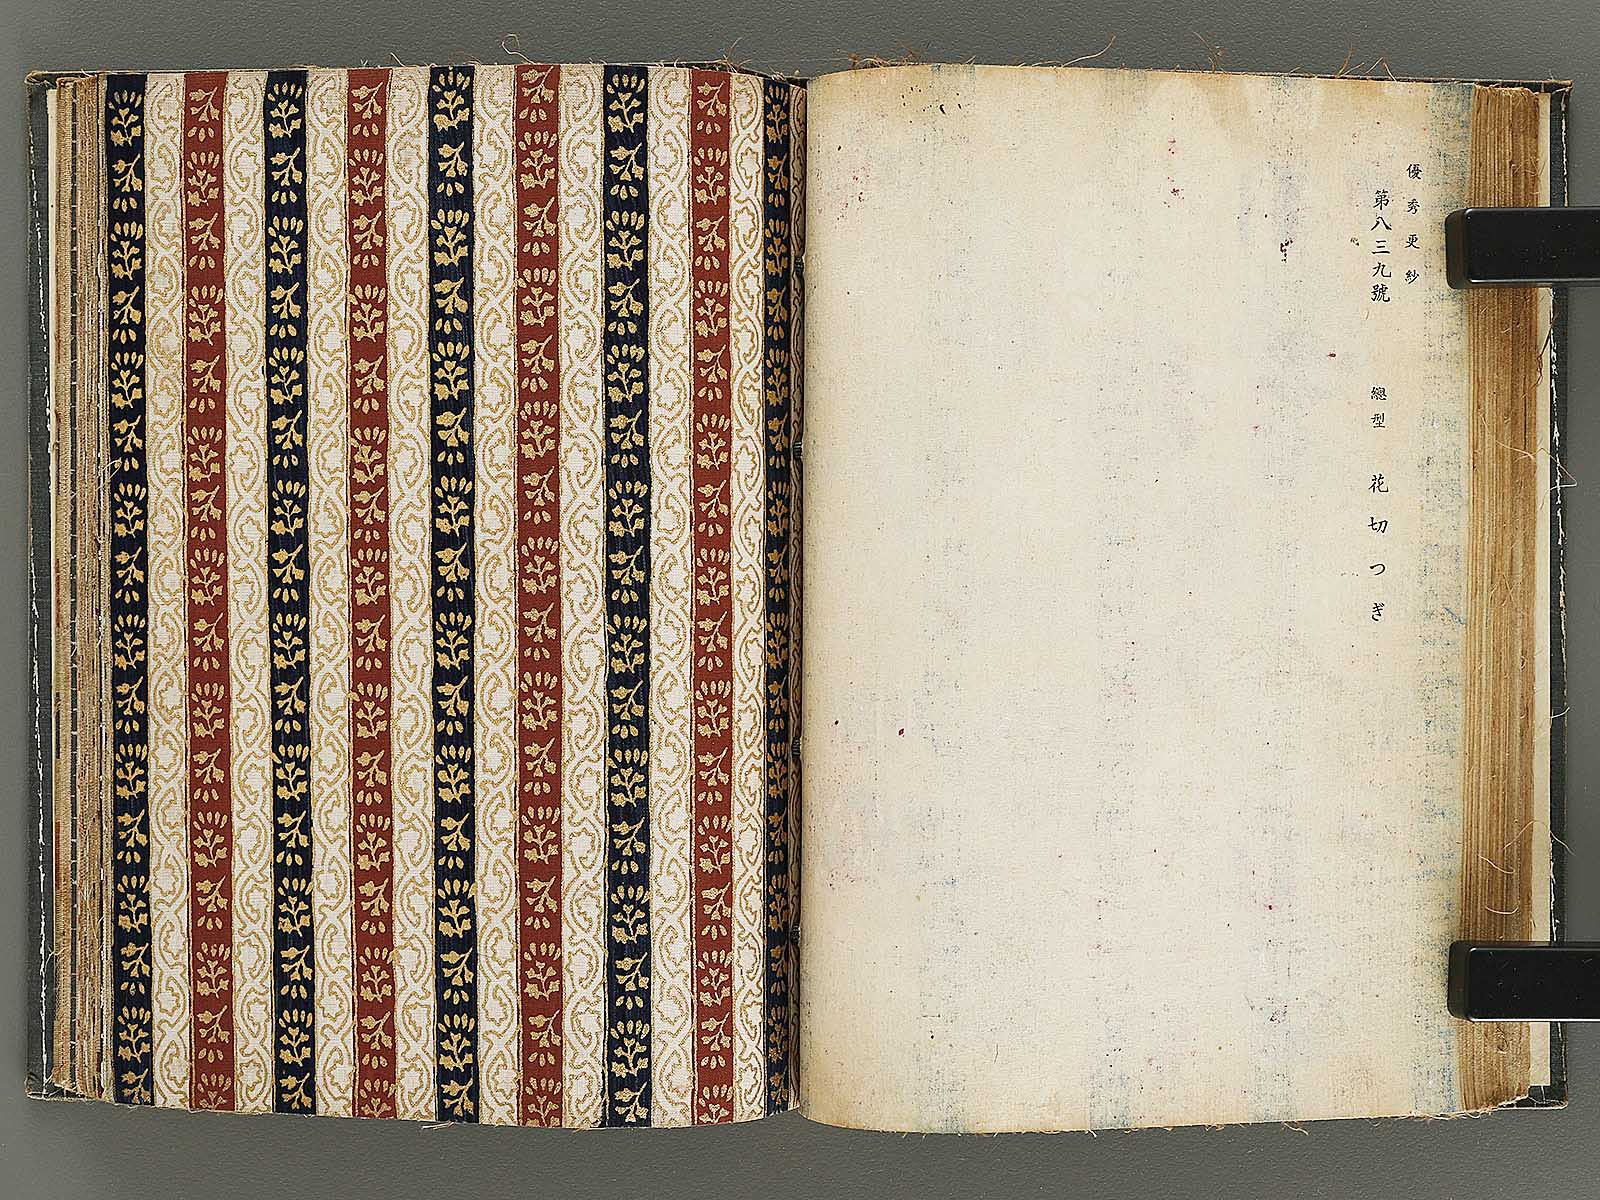 優秀更紗
第八三九號　總型　花切つぎ